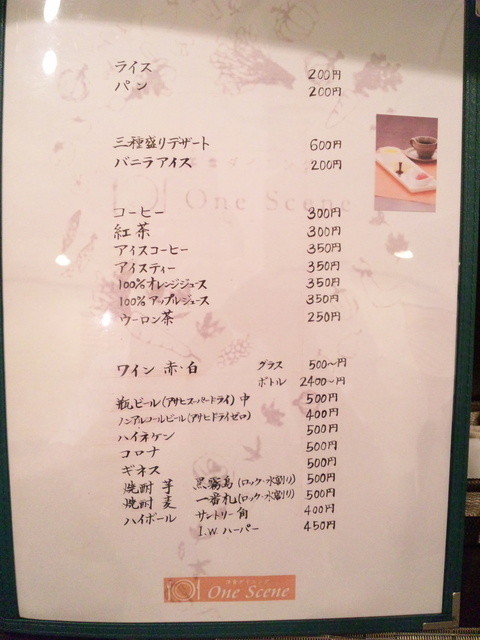 ライス 200円
パン 200円
三種盛りデザート 600円
バニラアイス 200円
One Scene
コーヒー 300円
紅茶 300円
アイスコーヒー 350円
アイスティー 350円
100%オレンジジュース 350円
100%アップルジュース 350円
ウーロン茶 250円
ワイン 赤・白 グラス 500〜円
ボトル 2400〜円
瓶ビール(アサヒスーパードライ) 中 500円
ノンアルコールビール(アサヒドライゼロ) 400円
ハイネケン 500円
コロナ 500円
ギネス 500円
焼酎 芋 黒霧島 (ロック・水割り) 500円
焼酎 麦 一番札 (ロック・水割り) 500円
ハイボール サントリー角 400円
I.W.ハーパー 450円
One Scene